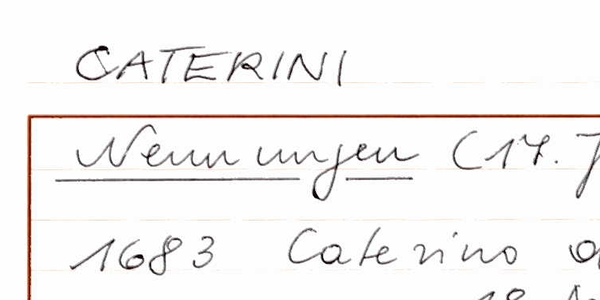 CATERINI
Nennungen (17. J
1683 Caterino
18